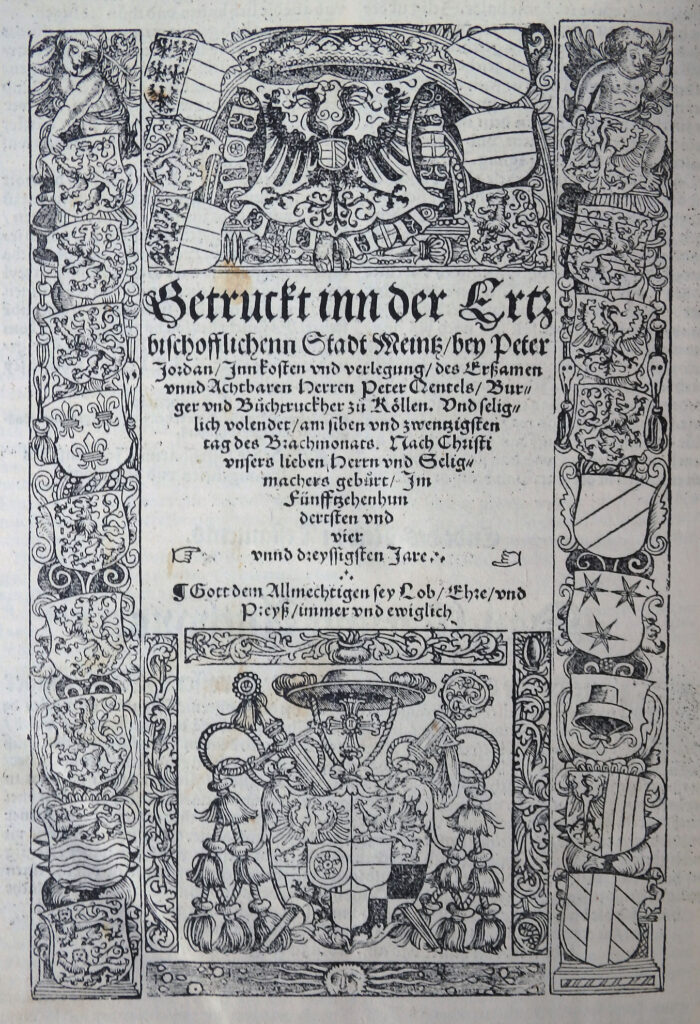 Getruckt inn der Ertz
bischofflichenn Stadt Meintz/bey Peter
Jordan/Inn kosten vnd verlegung/des Erßamen
vnnd Achtbaren Herren Peter Quentels/Bur=
ger vnd Bůchtruckher zů Köllen. Vnd selig=
lich volendet/am siben vnd zwentzigsten
tag des Brachmonats. Nach Christi
vnsers lieben Herrn vnd Selig=
machers gebürt/Im
Fünfftzehenhun
dertsten vnd
vier
vnnd dreyssigsten Jare.
¶Gott dem Allmechtigen sey Lob/Ehre/vnd
Preyß/immer vnd ewiglich